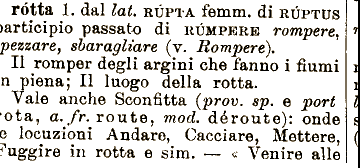 rótta 1. dal lat. RÚPTA femm. di RÚPTUS
participio passato di RÚMPERE rompere,
spezzare, sbaragliare (v. Rompere).
Il romper degli argini che fanno i fiumi
in piena; Il luogo della rotta.
Vale anche Sconfitta (prov. sp. e port
rota, a. fr. route, mod. déroute): onde
le locuzioni Andare, Cacciare, Mettere,
Fuggire in rotta e sim. — « Venire alle